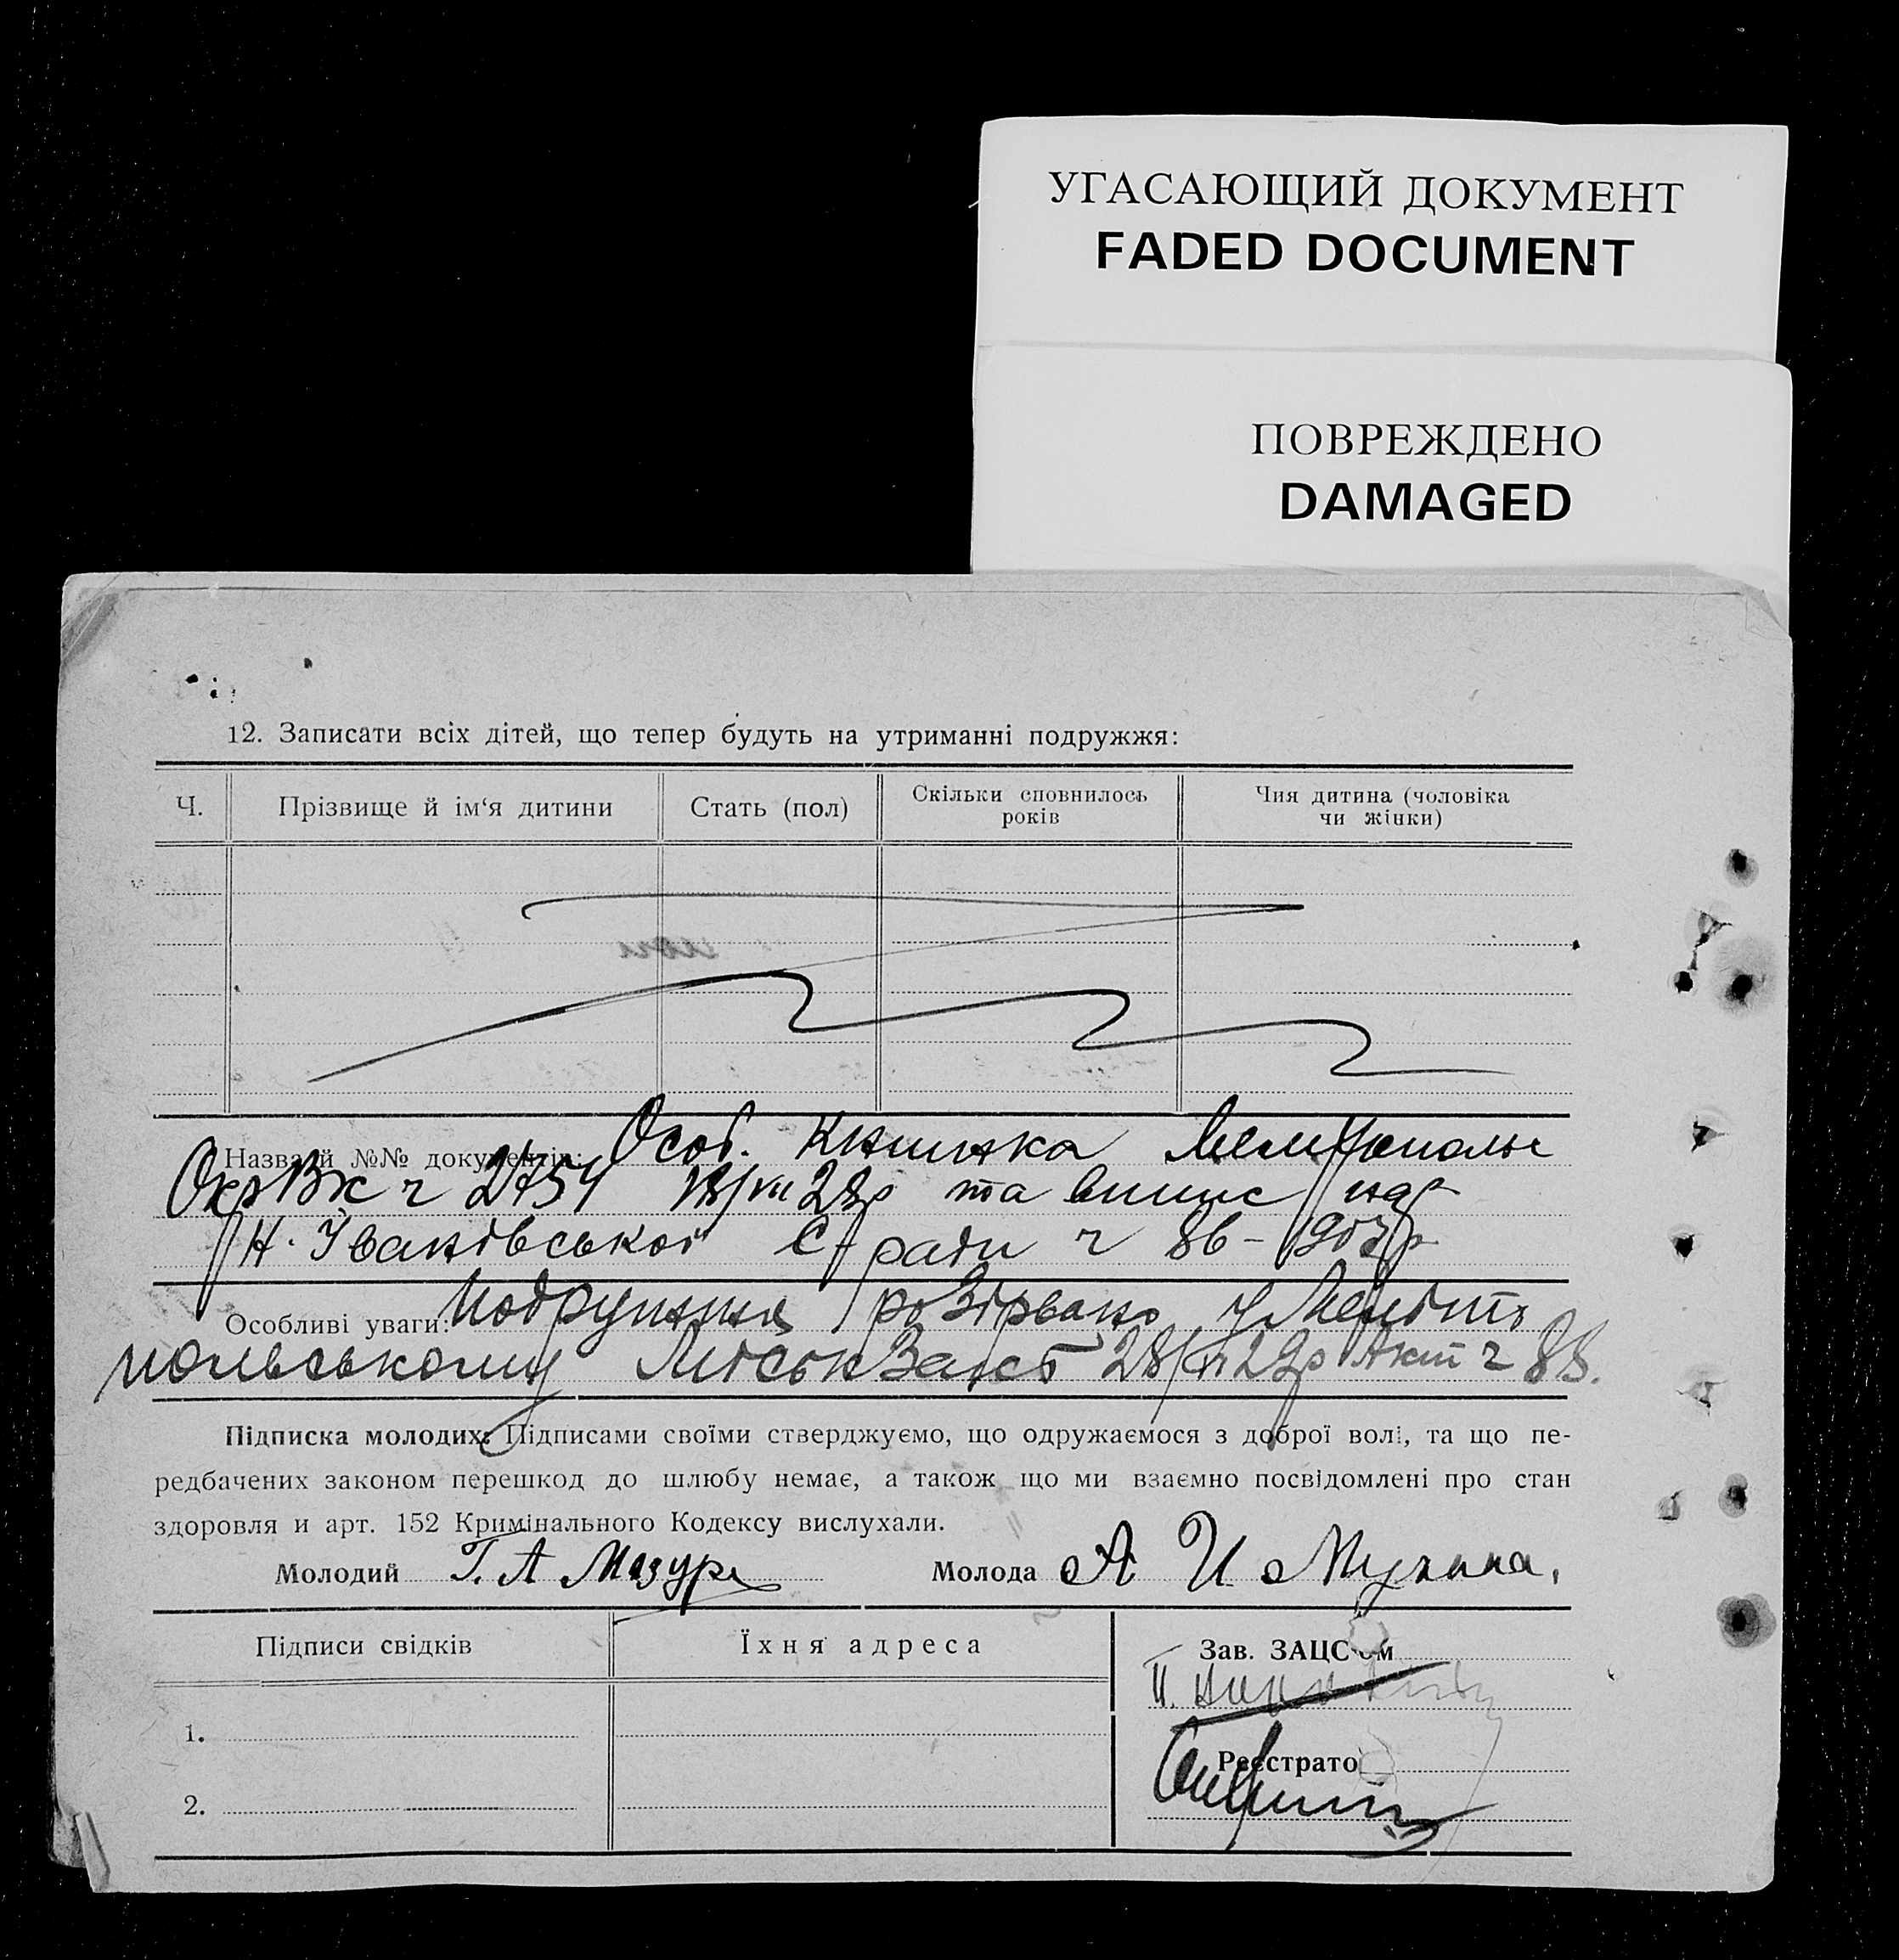 УГАСАЮЩИЙ ДОКУМЕНТ
FADED DOCUMENT
ПОВРЕЖДЕНО
DAMAGED
12. Записати всіх дітей, що тепер будуть на утриманні подружжя:
Ч.
Прізвище й ім‘я дитини
Стать (пол)
Скільки сповнилось
років
Чия дитина (чоловіка
чи жінки)
Назва й №№ документів: Особ. Книжка
ОкрВк ч 2754 та випис
Н. Іванівської С-ради ч 86-
Особливі уваги: Подружжя розірвано у Меліто
польському 28/ 29р Акт ч 88.
Підписка молодих: Підписами своїми стверджуємо, що одружаємося з доброї волі, та що пе-
редбачених законом перешкод до шлюбу немає, а також що ми взаємно посвідомлені про стан
здоровля и арт. 152 Кримінального Кодексу вислухали.
Молодий Г. А Мазур
Молода А И
Підписи свідків
Їхня адреса
Зав. ЗАЦС‘ом
1.
Реєстрато
2.